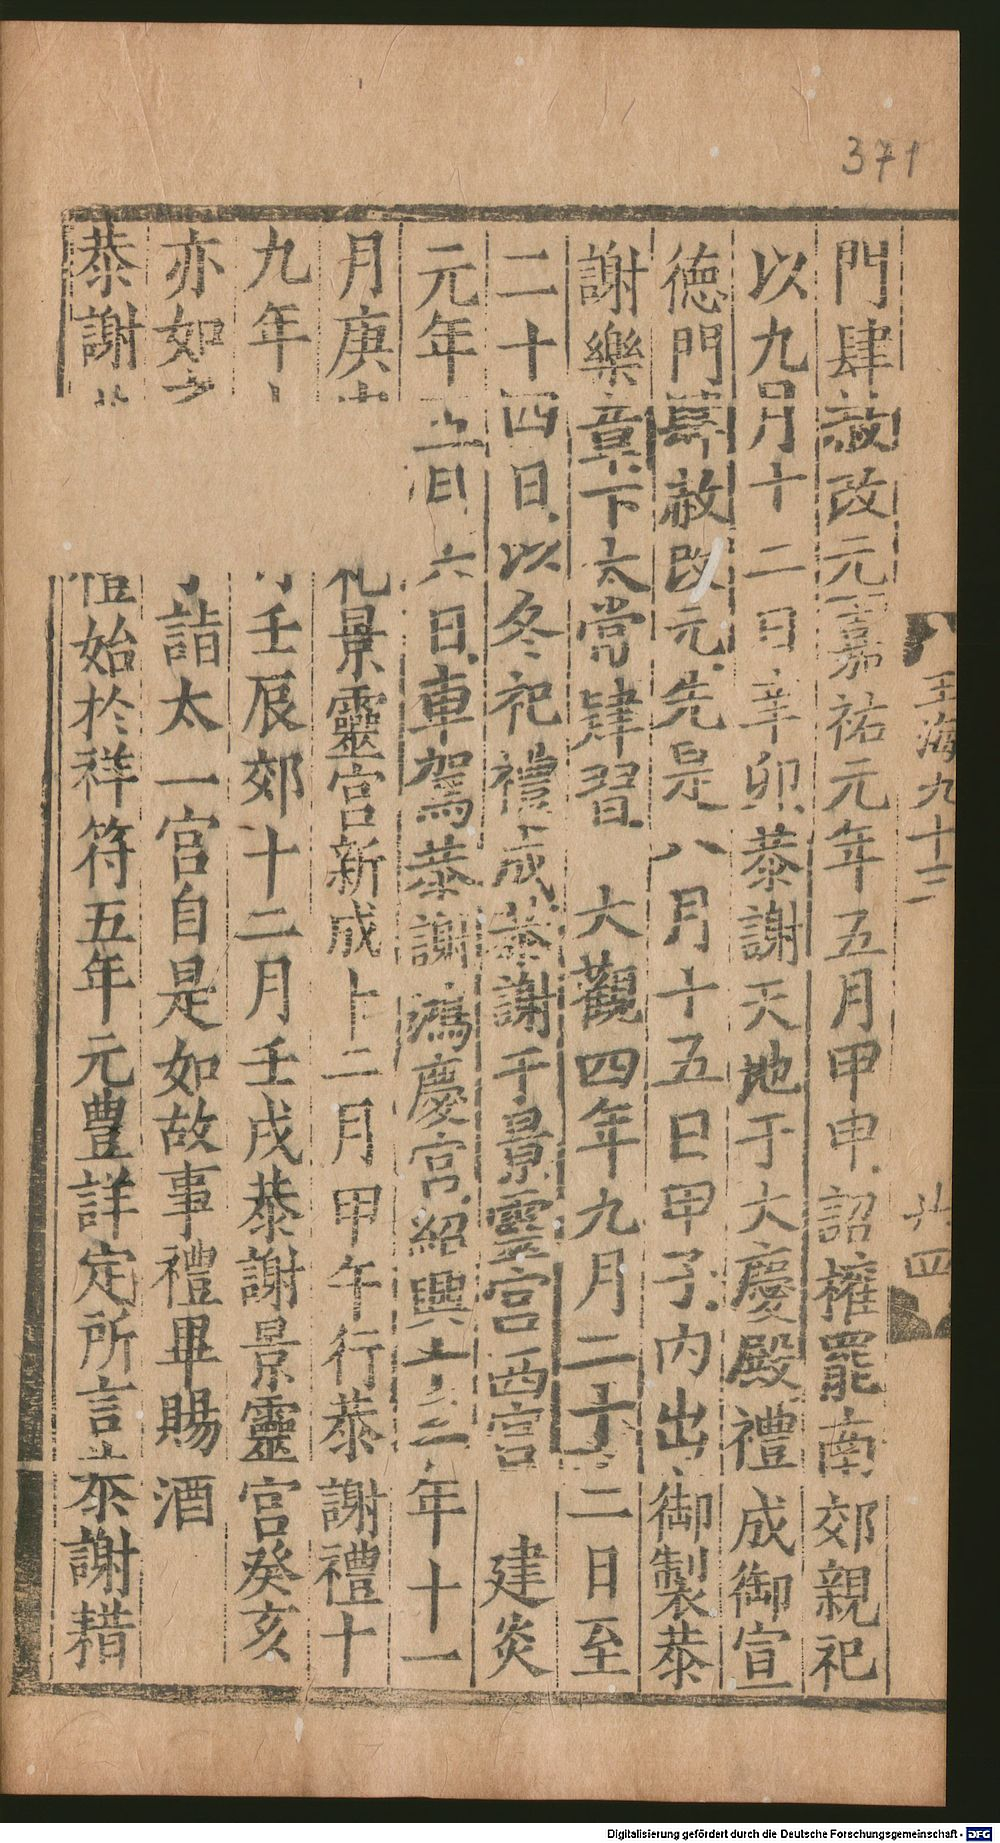 371
玉海九十三
廿四
門肆赦改元嘉祐元年五月甲申詔權罷南郊親祀
以九月十二日辛卯恭謝天地于大慶殿禮成御宣
德門肆赦改元先是八月十五日甲子內出御製恭
謝樂章下太常肄習 大觀四年九月二十二日至
二十四日以冬祀禮成恭謝于景靈宮西宮 建炎
元年 六日車駕恭謝鴻慶宮紹興十三年十一
月庚 景靈宮新成十二月甲午行恭謝禮十
九年 壬辰郊十二月壬戌恭謝景靈宮癸亥
亦如 詣太一宮自是如故事禮畢賜酒
恭謝 始於祥符五年元豊詳定所言恭謝耤
Digitalisierung gefördert durch die Deutsche Forschungsgemeinschaft - DFG